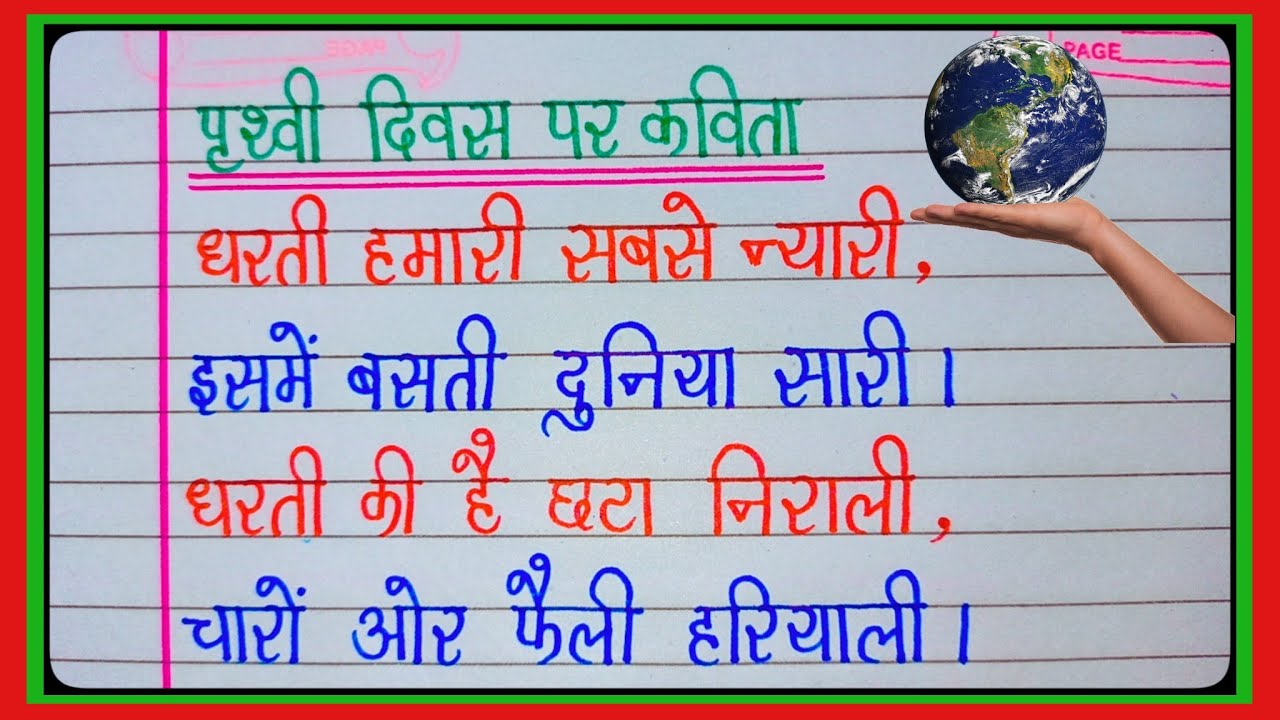 PAGE
PAGE
पृथ्वी दिवस पर कविता
धरती हमारी सबसे न्यारी,
इसमें बसती दुनिया सारी।
धरती की है छटा निराली,
चारों ओर फैली हरियाली।